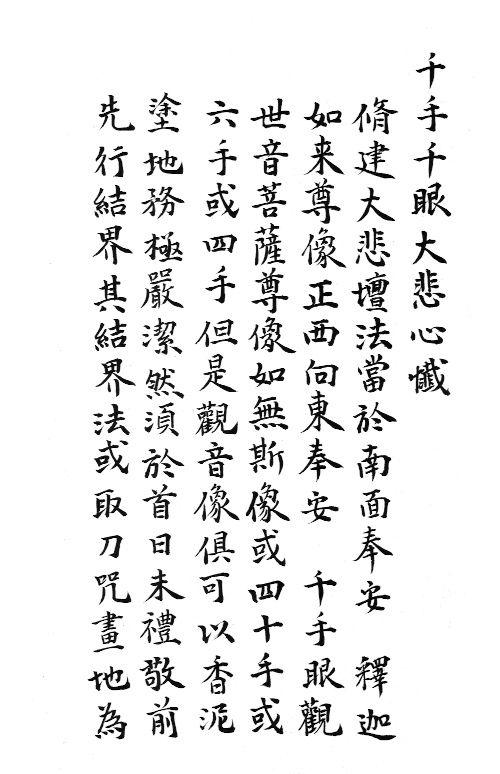 千手千眼大悲心懺
脩建大悲壇法當於南面奉安　釋迦
如来尊像正西向東奉安　千手眼觀
世音菩薩尊像如無斯像或四十手或
六手或四手但是觀音像俱可以香泥
塗地務極嚴潔然須於首日未禮敬前
先行結界其結界法或取刀咒畫地為